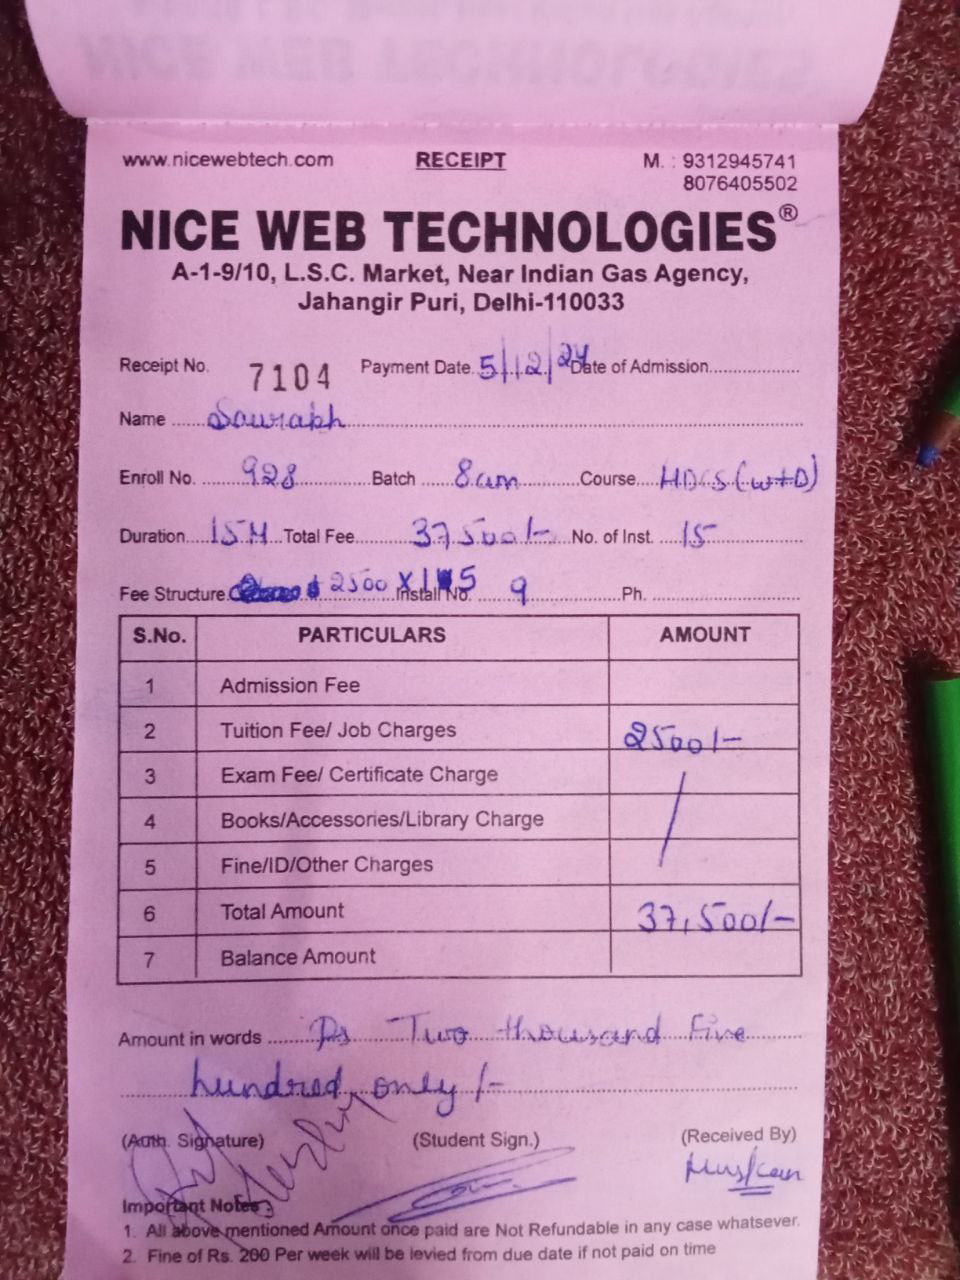 www.nicewebtech.com RECEIPT M. : 9312945741
8076405502
NICE WEB TECHNOLOGIES®
A-1-9/10, L.S.C. Market, Near Indian Gas Agency,
Jahangir Puri, Delhi-110033
Receipt No. 7104 Payment Date 5/12/24 Date of Admission
Name Sourabh
Enroll No. 928 Batch 8am Course HDCS (w+D)
Duration 15M Total Fee 37500/- No. of Inst. 15
Fee Structure 2500 X 15 Install No. 9 Ph.
S.No. PARTICULARS AMOUNT
1 Admission Fee
2 Tuition Fee/ Job Charges 2500/-
3 Exam Fee/ Certificate Charge
4 Books/Accessories/Library Charge
5 Fine/ID/Other Charges
6 Total Amount 37,500/-
7 Balance Amount
Amount in words Rs Two thousand Five
hundred only /-
(Auth. Signature) (Student Sign.) (Received By)
Muskan
Important Notes :
1. All above mentioned Amount once paid are Not Refundable in any case whatsever.
2. Fine of Rs. 200 Per week will be levied from due date if not paid on time